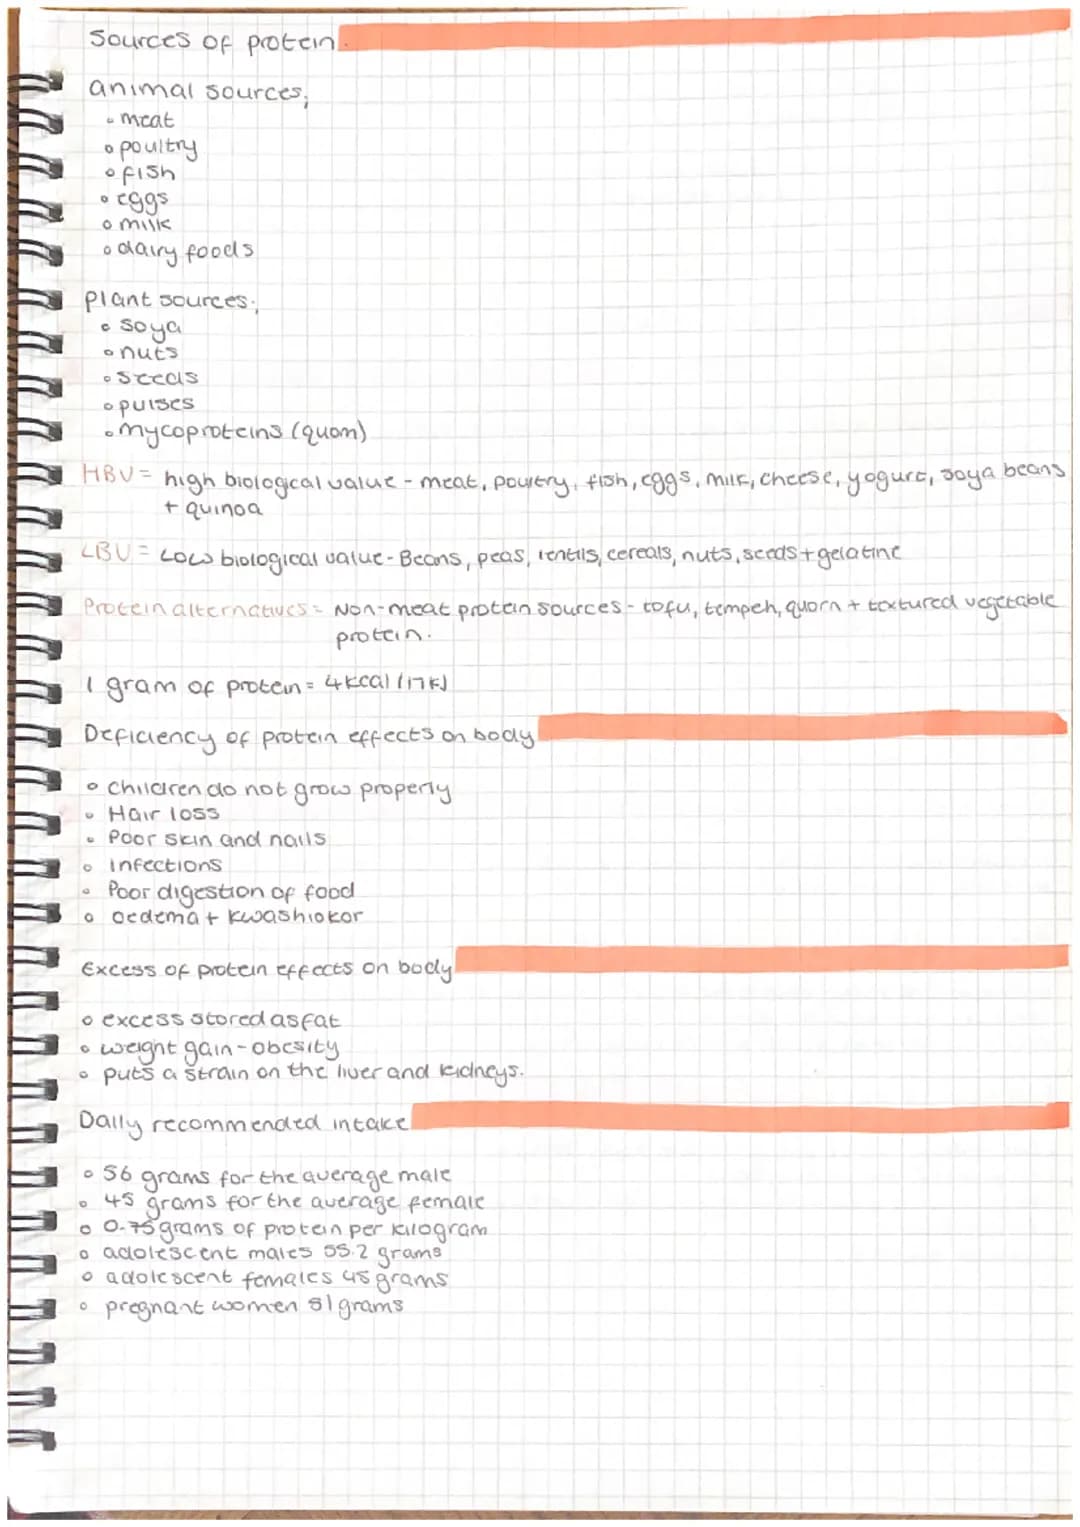 Sources of protein
animal sources;
• meat
• poultry
• fish
• eggs
• milk
• dairy foods
Plant sources;
• soya
• nuts
• seeds
• pulses
• mycoproteins (quorn)
HBV = high biological value - meat, poultry, fish, eggs, milk, cheese, yogurt, soya beans
+ quinoa
LBV = Low biological value - Beans, peas, lentils, cereals, nuts, seeds + gelatine
Protein alternatives = Non-meat protein sources - tofu, tempeh, quorn + textured vegetable
protein.
1 gram of protein = 4kcal (17KJ
Deficiency of protein effects on body
• children do not grow properly
• Hair loss
• Poor skin and nails
• infections
• Poor digestion of food
• oedema + kwashiokor
Excess of protein effects on body
• excess stored as fat
• weight gain - obesity
• puts a strain on the liver and kidneys.
Daily recommended intake
• 56 grams for the average male
• 45 grams for the average female
• 0.75 grams of protein per kilogram
• adolescent males 55.2 grams
• adolescent females 45 grams
• pregnant women 51 grams